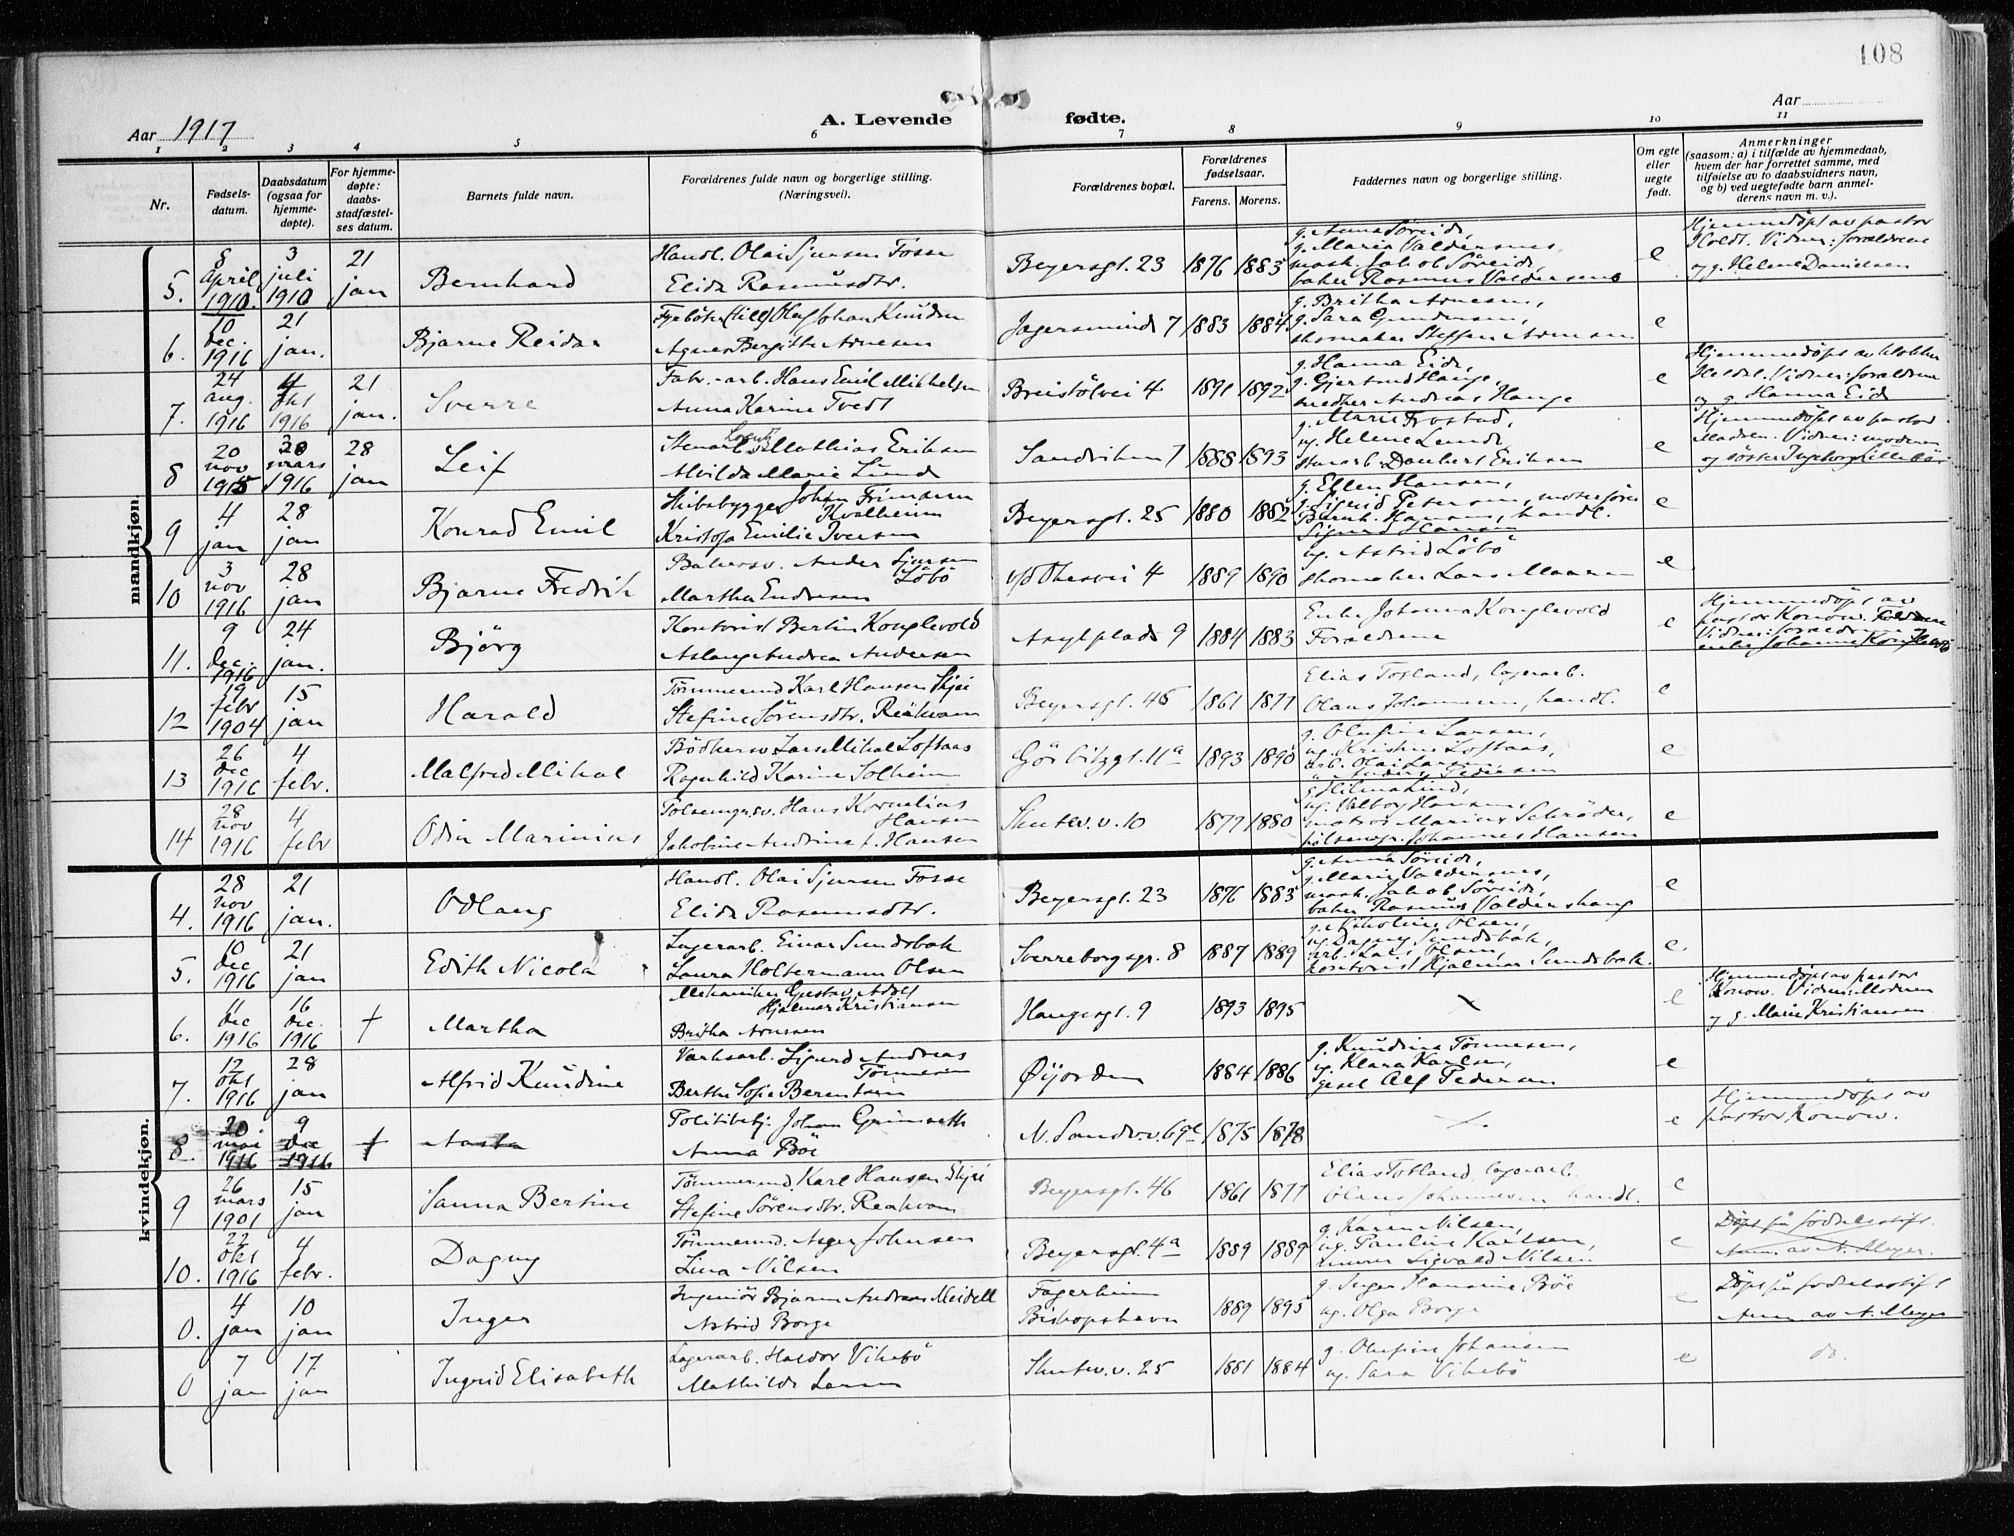 108
Aar 1917
A. Levende fødte.
Aar
1 2 3 4 5 6 7 8 9 10 11
Nr.
Fødsels-
datum.
Daabsdatum
(ogsaa for
hjemme-
døpte).
For hjemme-
døpte:
daabs-
stadfæstel-
ses datum.
Barnets fulde navn.
Forældrenes fulde navn og borgerlige stilling.
(Næringsvei).
Forældrenes bopæl.
Forældrenes
fødselsaar.
Farens. Morens.
Faddernes navn og borgerlige stilling.
Om egte
eller
uegte
født.
Anmerkninger
(saasom: a) i tilfælde av hjemmedaab,
hvem der har forrettet samme, med
tilføielse av to daabsvidners navn,
og b) ved uegtefødte barn anmel-
derens navn m. v.).
mandkjøn.
5. 8 April 1910. 3 juli 1910 21 jan
Bernhard
Handl. Olai Sjursen Fosse
Elida Rasmusdtr.
Beyersgt. 23 1876 1883
g. Anna Søreide,
g. Maria Valdersnes,
mask. Jakob Søreide,
baker Rasmus Valdersnes
e
Hjemmedöpt av pastor
Holdt. Vidner: forældrene
og g. Helene Danielsen
6. 10 Dec. 1916 21 jan.
Bjarne Reidar
Fyrböter Olaf Johan Knudsen
Agnes Bergitte Arnesen
Jægersmindе 7 1883 1884
g. Britha Arnesen,
g. Sara Gundersen,
skomaker Steffen Arnesen
e
7. 24 aug. 1916 4 okt 1916 21 jan.
Sverre
Fabr.-arb. Hans Emil Mikkelsen
Anna Karine Tvedt
Breistölvei 4 1891 1892
g. Hanna Eide,
g. Gjertrud Hauge,
smedker Andreas Hauge
e
Hjemmedöpt av klokker
Heldal. Vidner: forældrene
og g. Hanna Eide
8 20 nov 1915 30 mars 1916 28 jan
Leif
Mathias Eriksen
Alvilda Marie Lund
Sandviken 7 1888 1893
g. Marie Frostad,
ug. Helene Lund,
Eriksen
e
Hjemmedöpt av pastor
Madsen. Vidner: moderen
og söster Ingeborg
9 4 jan 28 jan
Konrad Emil
Skibsbygger Johan Frimann
Kvalheim
Kristofa Emilie Iversen
Beyersgt. 25 1880 1882
g. Ellen Hansen,
g. Sigrid Petersen,
Bernh. Hansen, handl.
Sigurd Hansen
e
10 3 nov 1916 28 jan
Bjarne Fredrik
Bakersv. Ander Sjursen
Löbö
Martha Endresen
4 1889 1890
ug. Astrid Löbö
skomaker Lars Maaren
e
11. 9 Dec. 1916 24 jan.
Björg
Kontorist Bertin Konglevold
Aslaug Andrea Andersen
Asylplads 9 1884 1883
Enke Johanna Konglevold
Forældrene
e
Hjemmedöpt av
pastor Konow.
Vidner: forældrene og
enke Johanna Konglevold
12 19 febr 1904 15 jan
Harald
Tömmermd Karl Hansen Skjei
Stefine Sörensdtr. Reakvam
Beyersgt. 46 1861 1877
Elias Totland, lagerarb.
Olaus Johannesen, handl.
e
13 26 Dec 1916 4 febr.
Malfred Mikal
Bödkersv Lars Mikal Loftaas
Ragnhild Karine Solheim
Görbitzgt. 11a 1893 1890
g. Olufine Larsen,
ug. Kristine Loftaas,
arb. Olai Larsen
Pedersen
e
14 28 nov 1916 4 febr
Odin Marinius
Pølsemgr.sv. Hans Kornelius
Hansen
Jakobine Andrine f. Hansen
Skutev. v. 10 1877 1880
g. Hilma Lind,
ug. Valborg Hansen,
matros Marius Schrøder,
pølsemgr. Johannes Hansen
e
kvindekjøn.
4. 28 nov 1916 21 jan.
Odlaug
Handl. Olai Sjursen Fosse
Elida Rasmusdtr.
Beyersgt. 23 1876 1883
g. Anna Søreide,
g. Marie Valdersnes,
mask. Jakob Søreide,
baker Rasmus Valdershaug
e
5. 10 Dec 1916 21 jan
Edith Nicola
Lagerarb. Einar Sundsbak
Laura Holtermann Olsen
Sverreborgsgr. 8 1887 1889
g. Nikoline Olsen,
ug. Dagny Sundsbak,
arb. Lars Olsen,
kontorist Hjalmar Sundsbak
e
6. 11 Dec 1916 16 Dec. 1916 †
Martha
Mekaniker Gustav Adolf
Hjalmar Kristiansen
Britha Arnesen
Haugesgt. 9 1893 1895
×
e
Hjemmedöpt av pastor
Konow. Vidner: Moderen
og g. Marie Kristiansen
7. 12 Okt 1916 28 jan
Alfrid Knudine
Verksarb. Sigurd Andreas
Tönnesen
Berthe Sofie Berentsen
Øijorden 1884 1886
g. Knudine Tönnesen,
ug. Klara Karlsen,
gesel Alf Pedersen
e
8. 20 mai 1916 9 Dec 1916 †
Aasta
Politibtj. Johan Grimseth
Anna Böe
N. Sandv. v. 69e 1875 1878
×
e
Hjemmedöpt av
pastor Konow.
9 26 mars 1901 15 jan
Sanna Bertine
Tömmermd. Karl Hansen Skjei
Stefine Sörensdtr. Reakvam
Beyersgt. 46 1861 1877
Elias Totland, lagerarb.
Olaus Johannesen handl.
e
10. 22 Okt 1916 4 febr.
Dagny
Tömmermd. Asger Johnsen
Lina Nilsen
Beyersgt. 4a 1889 1889
g. Karen Nilsen,
ug. Pauline Karlsen,
murer Sigvald Nilsen
e
Döpt på födselsstift.
Anm. av A. Meyer.
0. 4 jan 10 jan
Inger
Ingeniör Bjarne Andreas Meidell
Astrid Borge
Fagerheim
Biskopshavn 1889 1895
g. Inger Hansine Böe
ug. Olga Borge
e
Döpt på födselsstift
Anm av A. Meyer
0 7 jan 17 jan
Ingrid Elisabeth
Lagerarb. Haldor Vikebö
Mathilde Larsen
Skutev. v. 25 1881 1884
g. Olufine Johansen
ug. Sara Vikebö
e
do.